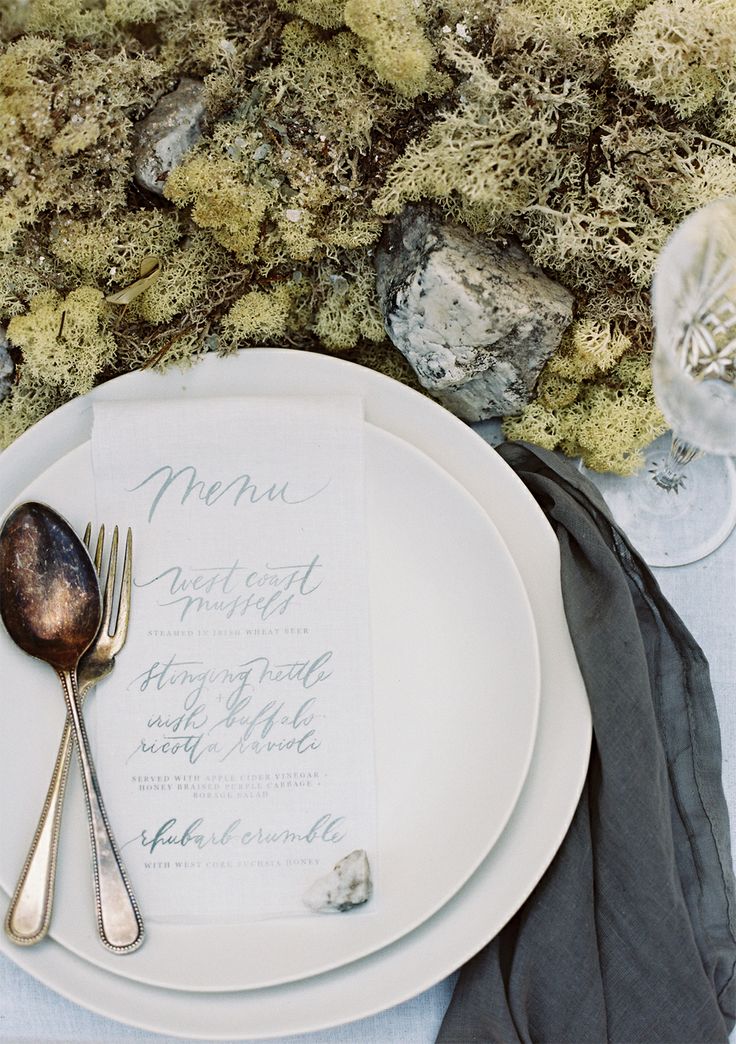 menu
west coast
mussels
STEAMED IN IRISH WHEAT BEER
stinging nettle
+
irish buffalo
ricotta ravioli
SERVED WITH APPLE CIDER VINEGAR +
HONEY BRAISED PURPLE CABBAGE +
BORAGE SALAD
rhubarb crumble
WITH WEST CORK FUCHSIA HONEY